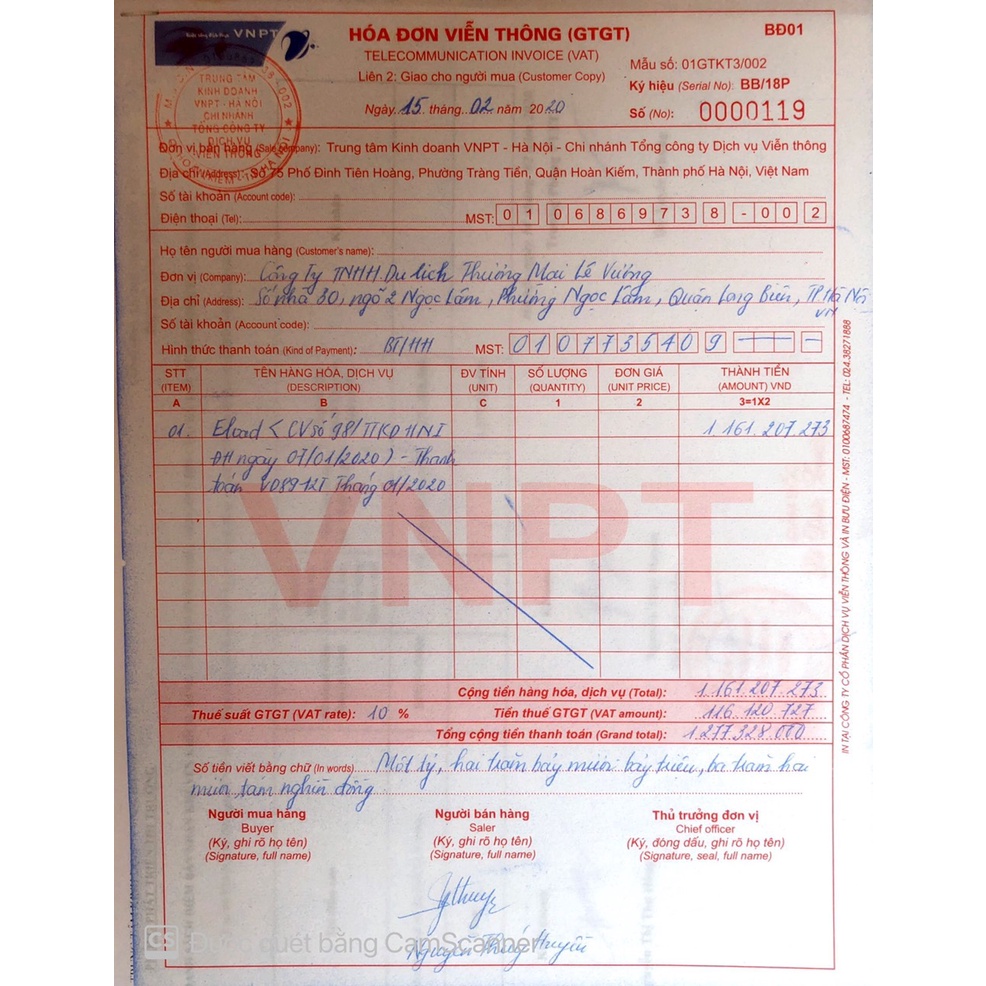 VNPT
HÓA ĐƠN VIỄN THÔNG (GTGT)
BĐ01
TELECOMMUNICATION INVOICE (VAT)
Mẫu số: 01GTKT3/002
Liên 2: Giao cho người mua (Customer Copy)
Ký hiệu (Serial No): BB/18P
Ngày 15 tháng 02 năm 2020
Số (No): 0000119
TRUNG TÂM
KINH DOANH
VNPT - HÀ NỘI
CHI NHÁNH
TỔNG CÔNG TY
DỊCH VỤ
VIỄN THÔNG
Đơn vị bán hàng (Sale company): Trung tâm Kinh doanh VNPT - Hà Nội - Chi nhánh Tổng công ty Dịch vụ Viễn thông
Địa chỉ (Address): Số 75 Phố Đinh Tiên Hoàng, Phường Tràng Tiền, Quận Hoàn Kiếm, Thành phố Hà Nội, Việt Nam
Số tài khoản (Account code):
Điện thoại (Tel): MST: 0106869738-002
Họ tên người mua hàng (Customer's name):
Đơn vị (Company): Công Ty TNHH Du lịch Thương Mại Lê Vương
Địa chỉ (Address): Số nhà 30, ngõ 2 Ngọc Lâm, Phường Ngọc Lâm, Quận Long Biên, TP Hà Nội
VN
Số tài khoản (Account code):
Hình thức thanh toán (Kind of Payment): BT/HH MST: 0107735409
STT TÊN HÀNG HÓA, DỊCH VỤ ĐV TÍNH SỐ LƯỢNG ĐƠN GIÁ THÀNH TIỀN
(ITEM) (DESCRIPTION) (UNIT) (QUANTITY) (UNIT PRICE) (AMOUNT) VND
A B C 1 2 3=1X2
01 Eload ( CV số 98/TTKD HNI 1.161.207.273
ĐH ngày 07/01/2020) - Thanh
toán VD8912T Tháng 01/2020
VNPT
Cộng tiền hàng hóa, dịch vụ (Total): 1.161.207.273
Thuế suất GTGT (VAT rate): 10 % Tiền thuế GTGT (VAT amount): 116.120.727
Tổng cộng tiền thanh toán (Grand total): 1.277.328.000
Số tiền viết bằng chữ (In words) Một tỷ, hai trăm bảy mươi bảy triệu, ba trăm hai
mươi tám nghìn đồng
Người mua hàng Người bán hàng Thủ trưởng đơn vị
Buyer Saler Chief officer
(Ký, ghi rõ họ tên) (Ký, ghi rõ họ tên) (Ký, đóng dấu, ghi rõ họ tên)
(Signature, full name) (Signature, full name) (Signature, seal, full name)
CS Được quét bằng CamScanner
Nguyễn Thuý Huyền
IN TẠI CÔNG TY CỔ PHẦN DỊCH VỤ VIỄN THÔNG VÀ IN BƯU ĐIỆN - MST: 0100687474 - TEL: 024.38271888